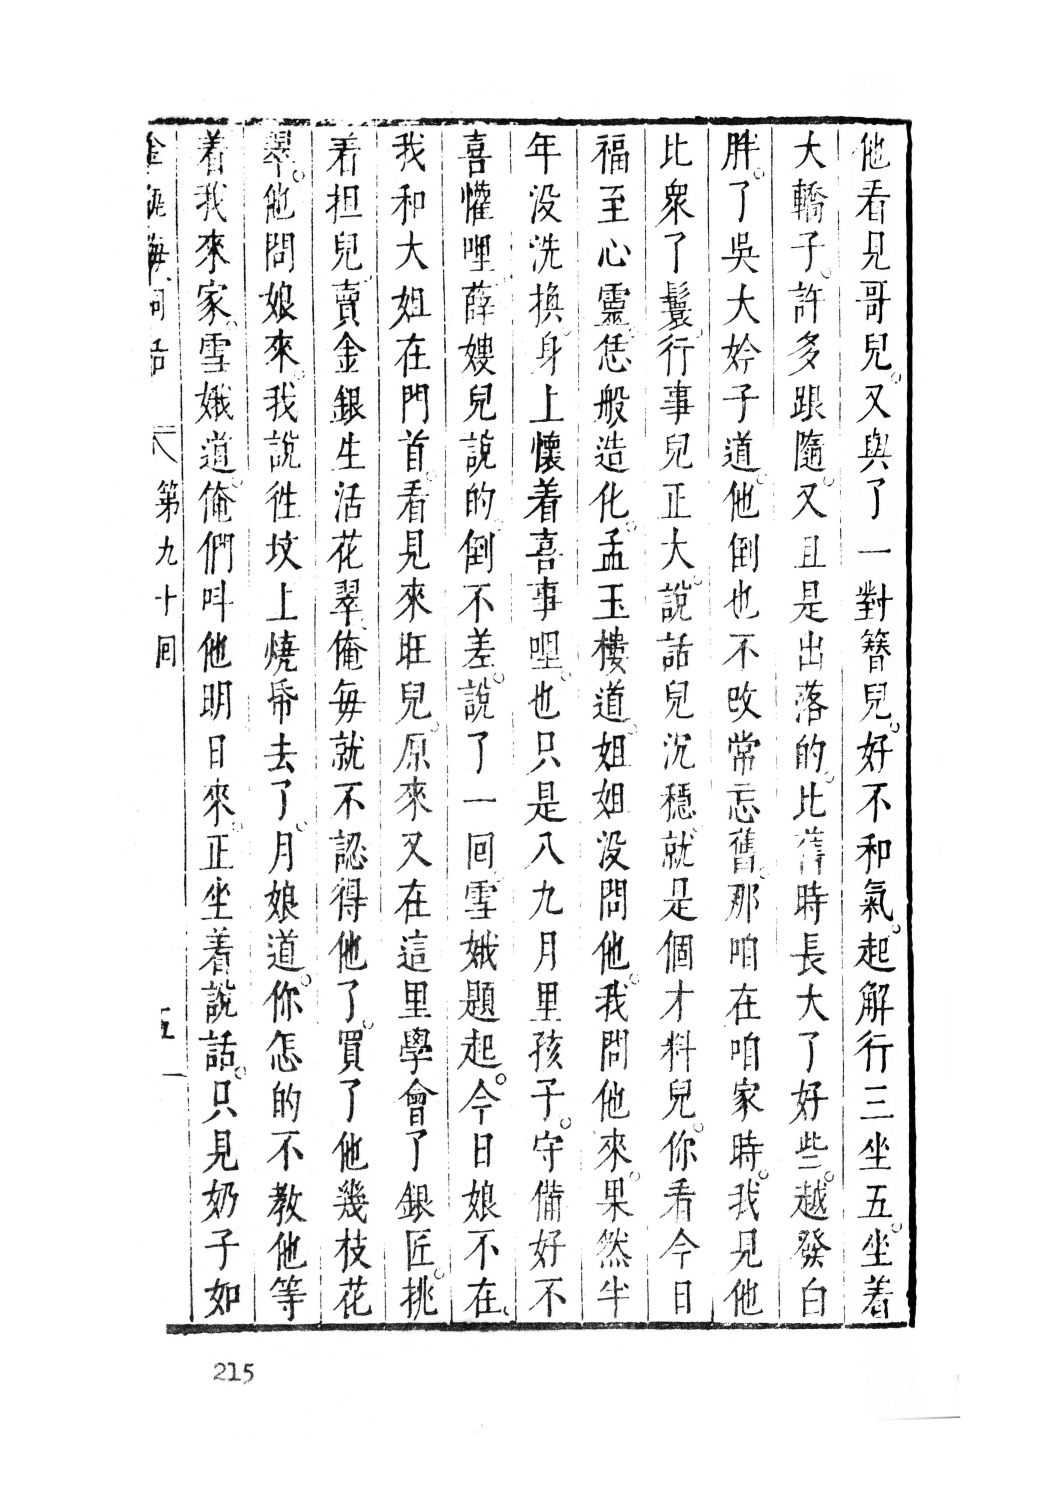 他看見哥兒。又與了一對簪兒。好不和氣。起解行三坐五。坐着
大轎子。許多跟隨。又且是出落的。比舊時長大了好些。越發白
胖。了吳大妗子道。他倒也不改常忘舊。那咱在咱家時。我見他
比衆了鬟。行事兒正大。說話兒沉穩。就是個才料兒。你看今日
福至心靈。恁般造化。孟玉樓道。姐姐没問他。我問他來。果然半
年没洗換。身上懷着喜事哩。也只是八九月里孩子。守備好不
喜懽哩。薛嫂兒說的。倒不差。說了一回。雪娥題起。今日娘不在。
我和大姐在門首。看見來旺兒。原來又在這里學會了銀匠。挑
着担兒賣金銀生活花翠。俺每就不認得他了。買了他幾枝花
翠。他問娘來。我說徃坟上燒帋去了。月娘道。你怎的不教他等
着我來家。雪娥道。俺們呌他明日來。正坐着說話。只見奶子如
金瓶梅詞話 八 第九十回 五
215